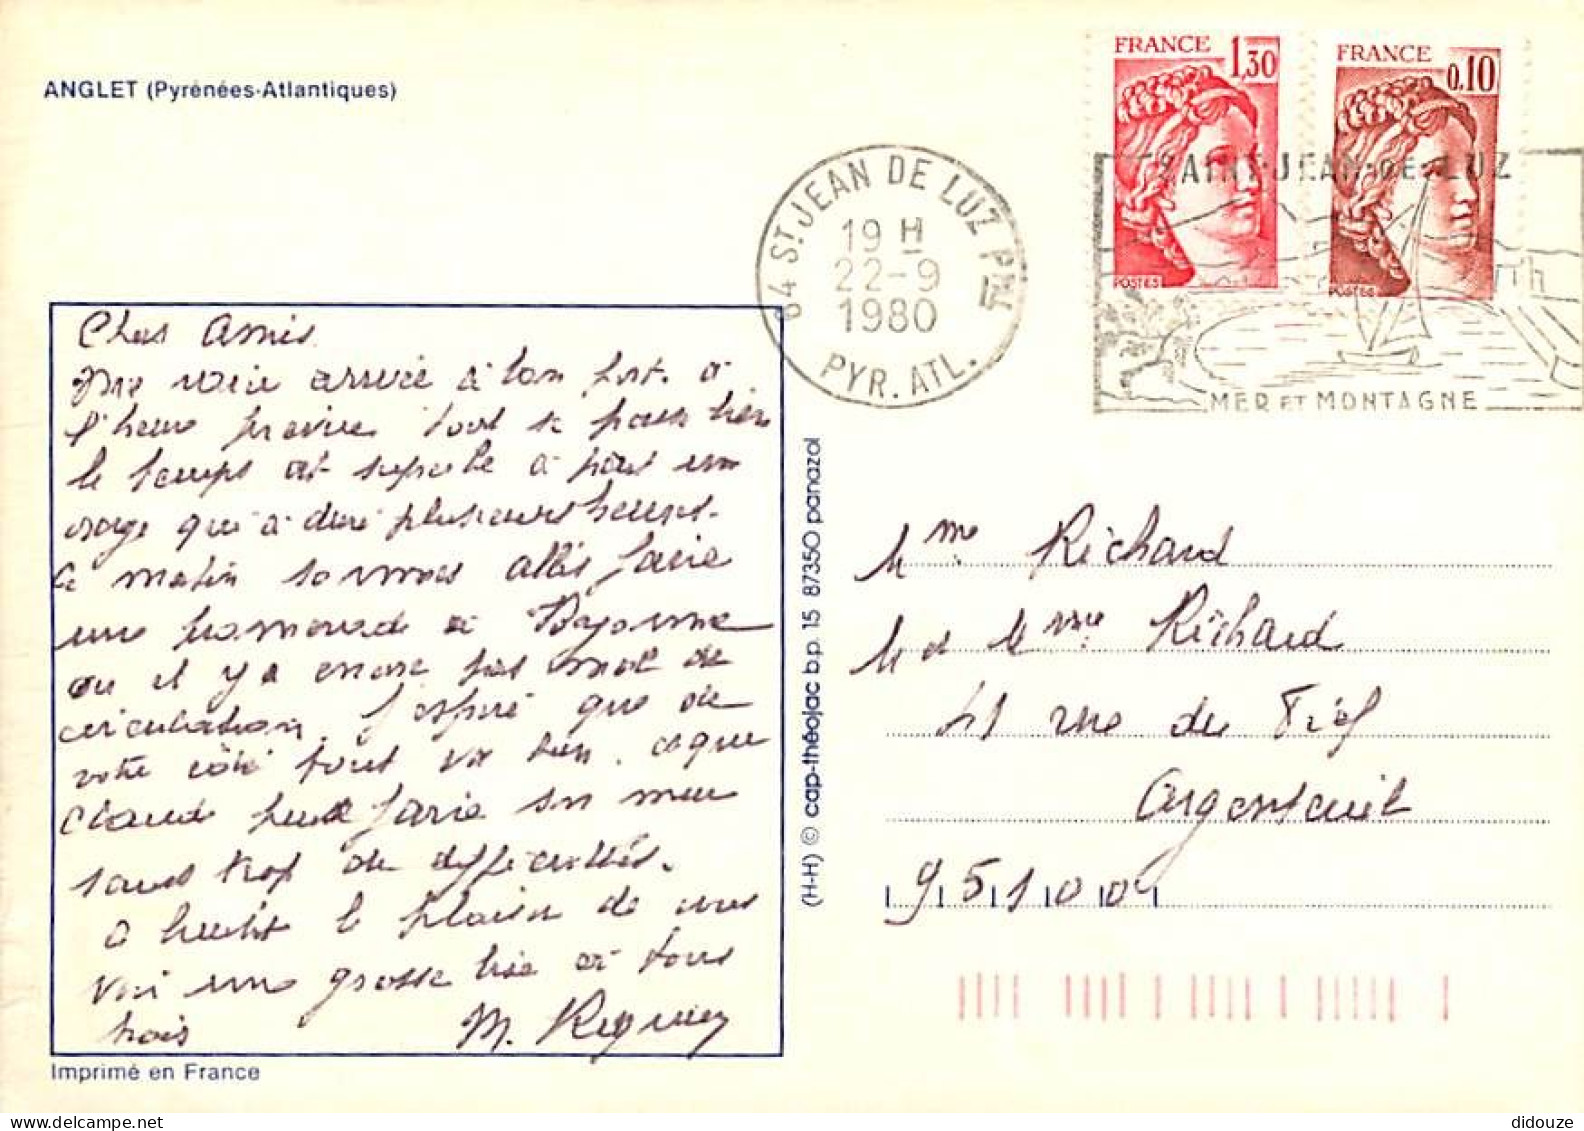 ANGLET (Pyrénées-Atlantiques)
FRANCE 1,30
POSTES
FRANCE 0,10
POSTES
64 ST JEAN DE LUZ PPAL
19 H
22-9
1980
PYR. ATL.
SAINT-JEAN-DE-LUZ
MER ET MONTAGNE
Chers Amis
Me voici arrivée à bon port. à
l'heure prévue tout se passe bien
le temps est superbe à part un
orage qui a duré plusieurs heures.
Ce matin sommes allés faire
une promenade à Bayonne
ou il y a encore pas mal de
circulation. J'espère que de
votre côté tout va bien. et que
Claude peut faire son
sans trop de difficultés.
à bientôt le plaisir de vous
voir une grosse bise à tous
trois M.
Imprimé en France
(H-H) © cap-théojac b.p. 15 87350 panazol
Mme Richard
M et Mme Richard
41 rue du Fief
Argenteuil
95100
didouze